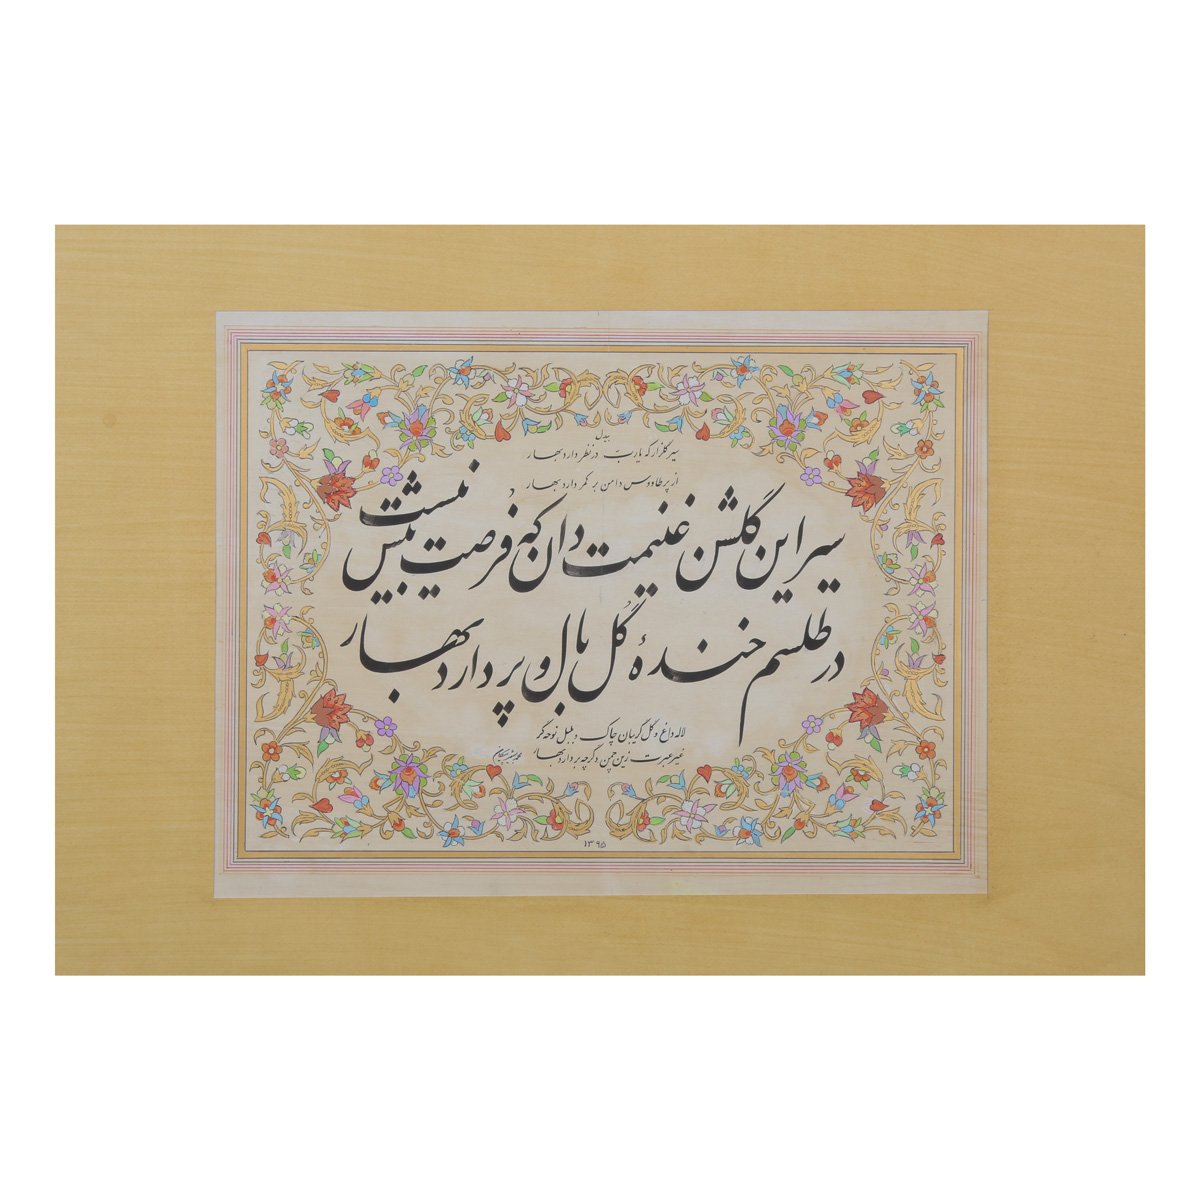 بیدل
سیر گلزار که یارب در نظر دارد بهار
از پر طاووس دامن بر کمر دارد بهار
سیر این گلشن غنیمت دان که فرصت بیش نیست
در طلسم خندهٔ گل بال و پر دارد بهار
لاله داغ و گل گریبان چاک و بلبل نوحه گر
غیر عبرت زین چمن دگر چه بر دارد بهار
۱۳۹۵